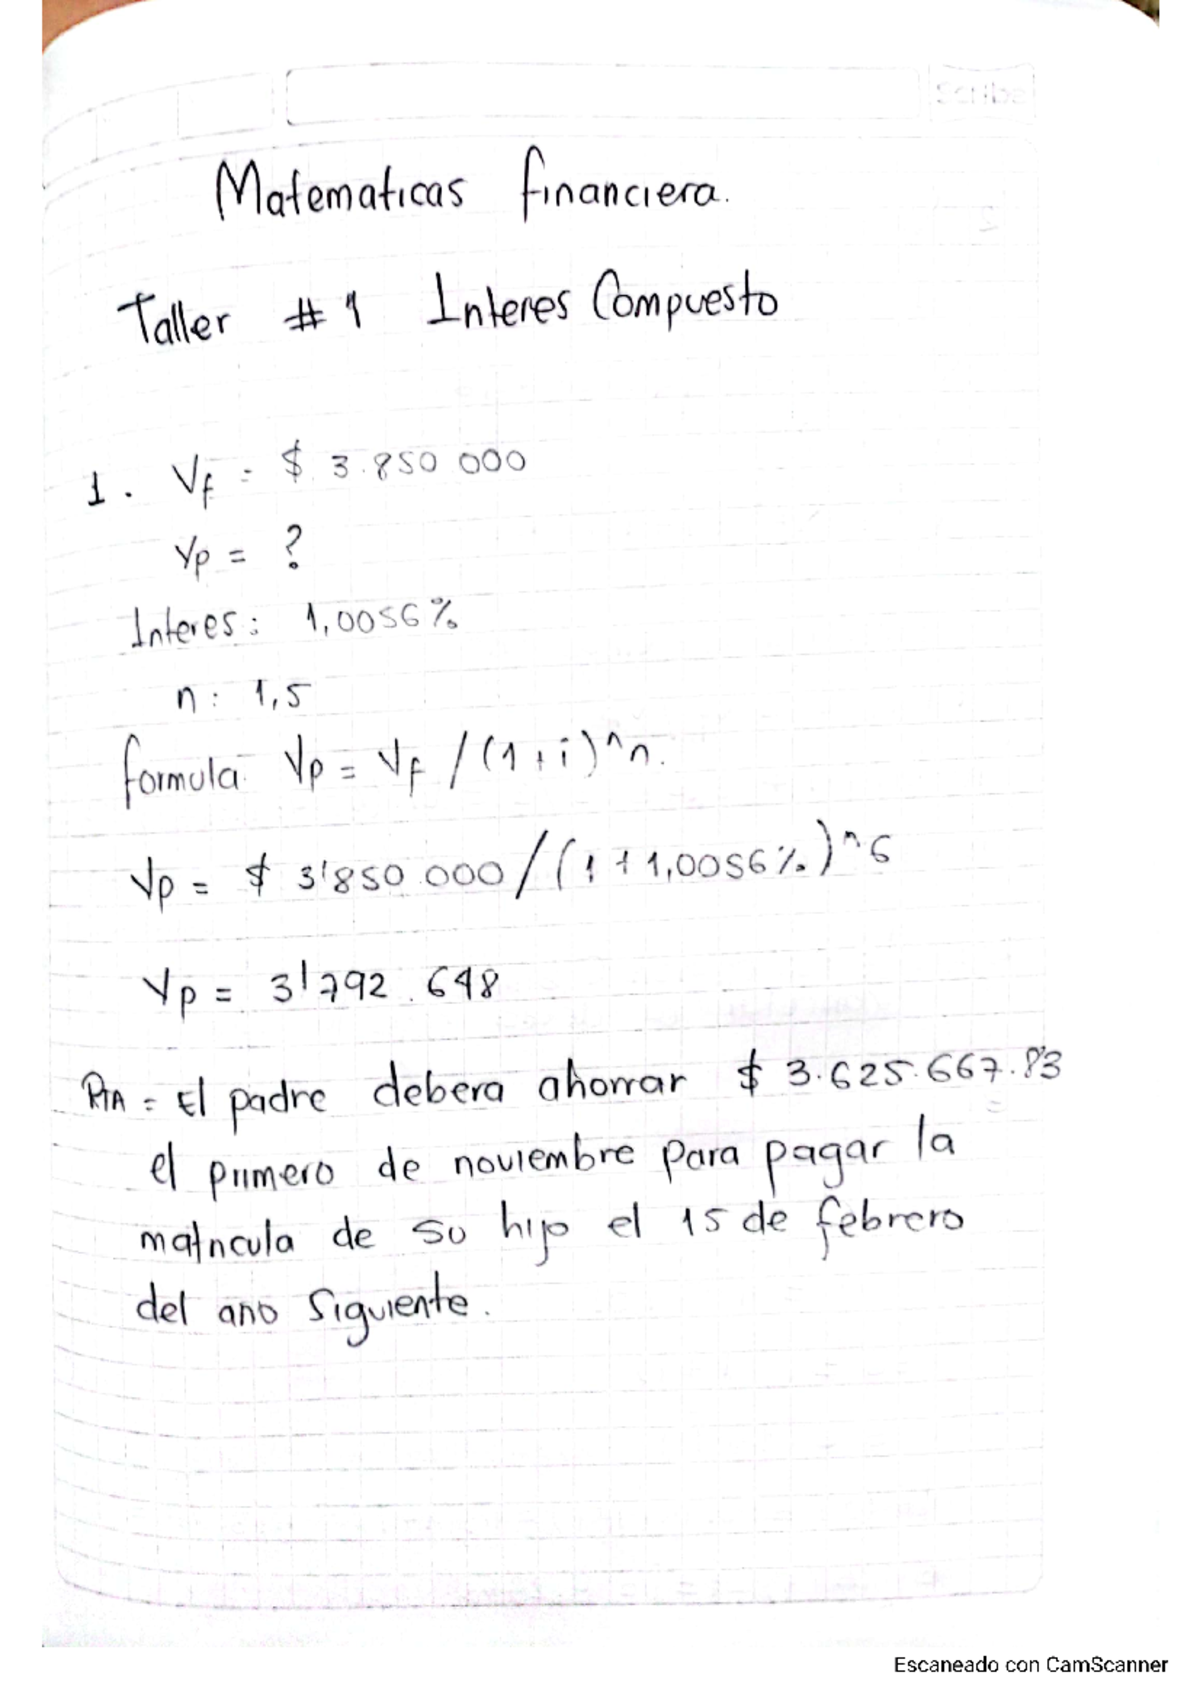 Scribe
Matematicas financiera.
Taller # 1 Interes Compuesto
1. Vf = $ 3.850 000
Vp = ?
Interes: 1,0056%
n: 1,5
formula Vp = Vf / (1+i)^n.
Vp = $ 3'850.000/(1+1,0056%)^6
Vp = 3'792.648
RTA = El padre debera ahorrar $ 3.625.667.83
el primero de noviembre para pagar la
matricula de su hijo el 15 de febrero
del ano siguiente.
Escaneado con CamScanner